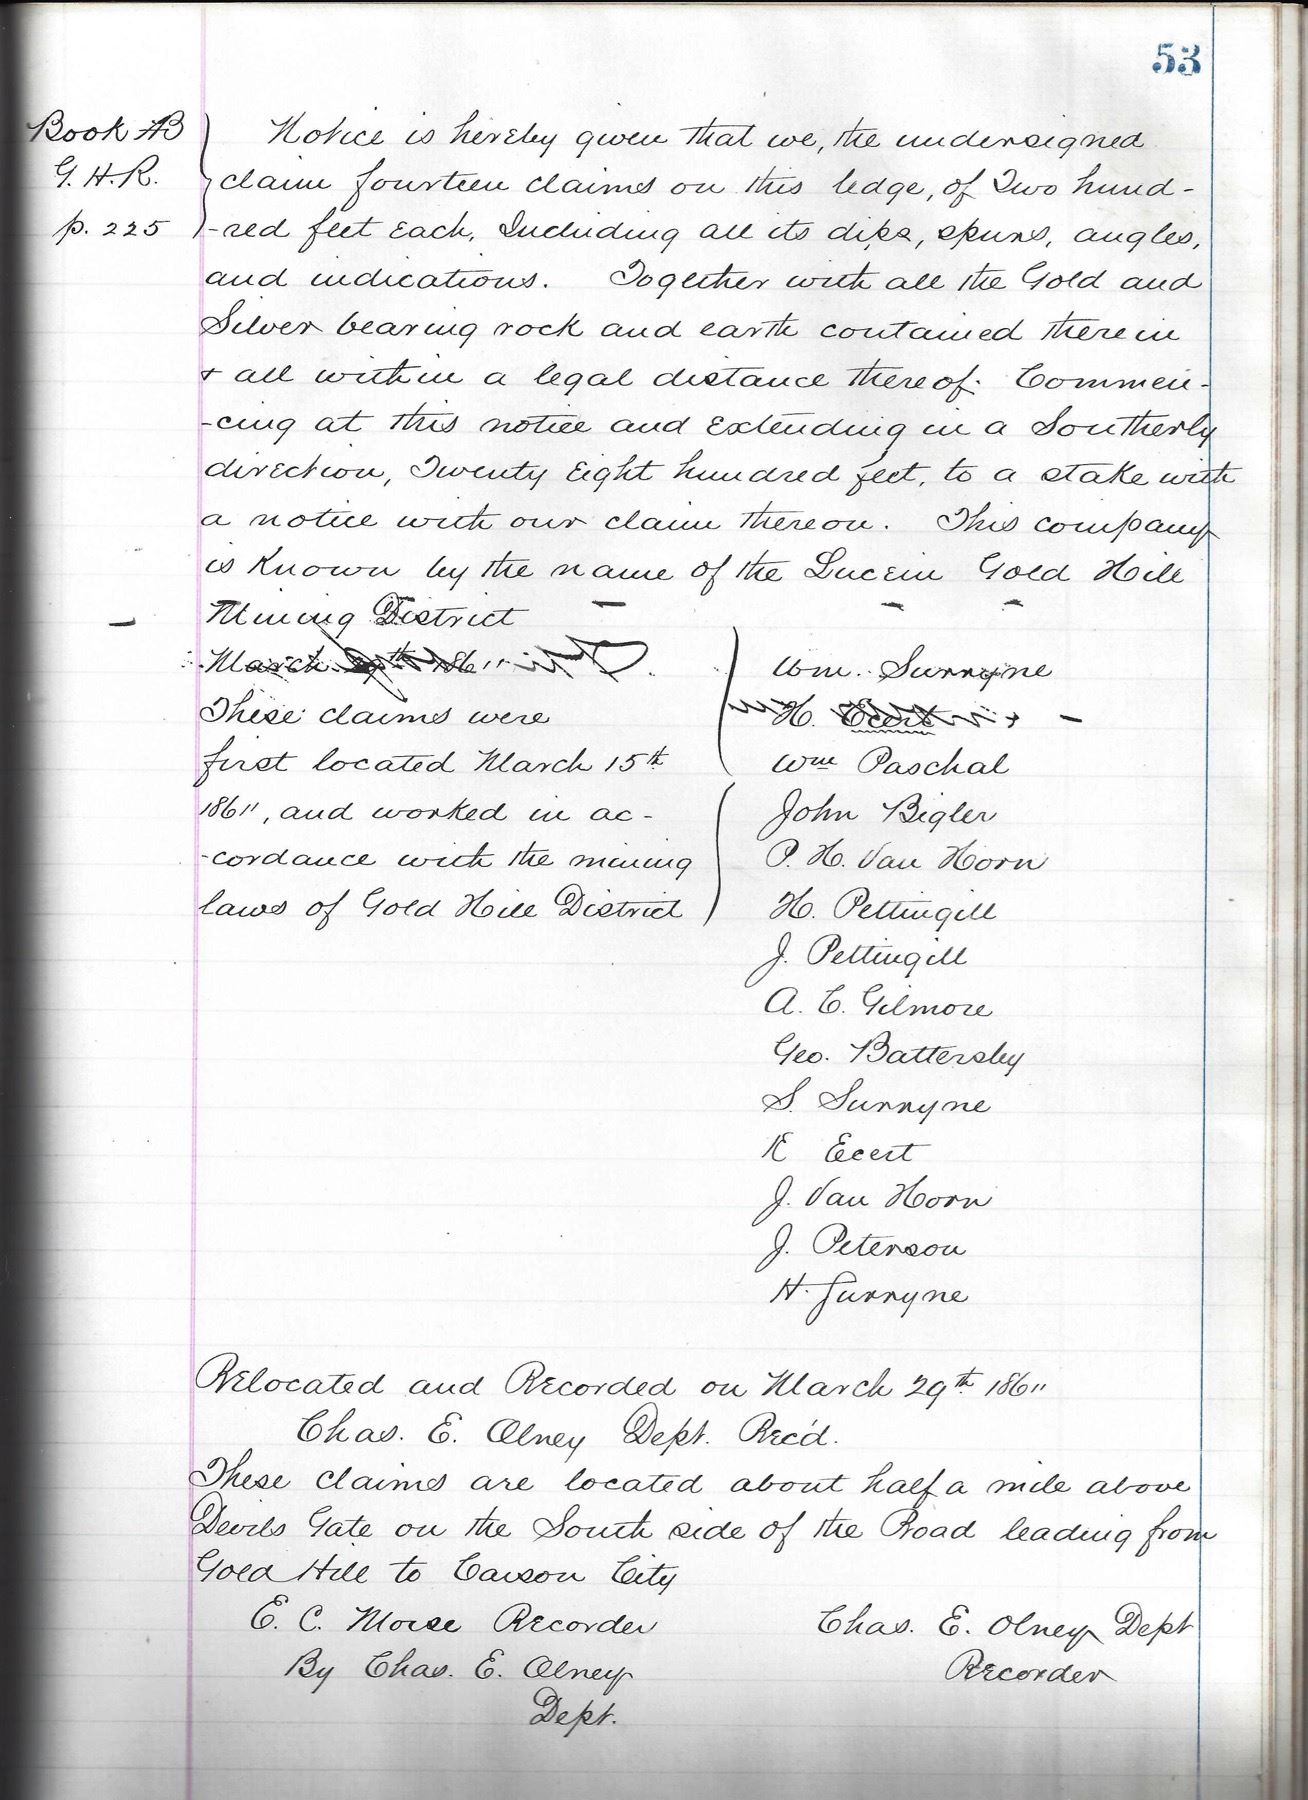 53
Book AB
G. H. R.
p. 225
Notice is hereby given that we, the undersigned
claim fourteen claims on this ledge, of Two hund-
-red feet Each, Including all its dips, spurs, angles,
and indications. Together with all the Gold and
Silver bearing rock and earth contained therein
& all within a legal distance thereof. Commen-
-cing at this notice and Extending in a Southerly
direction, Twenty Eight hundred feet, to a stake with
a notice with our claim thereon. This company
is Known by the name of the Lucein Gold Hill
Mining District
March 29th 186"
These claims were
first located March 15th
186", and worked in ac-
-cordance with the mining
laws of Gold Hill District
Wm. Surryne
H. Ecert
Wm Paschal
John Bigler
P. H. Van Horn
H. Pettingill
J. Pettingill
A. C. Gilmore
Geo. Battersby
S. Surryne
K Ecert
J. Van Horn
J. Peterson
H. Surryne
Relocated and Recorded on March 29th 186"
Chas. E. Olney Dept. Rec'd.
These claims are located about half a mile above
Devils Gate on the South side of the Road leading from
Gold Hill to Carson City
E. C. Morse Recorder
By Chas. E. Olney
Dept.
Chas. E. Olney Dept
Recorder